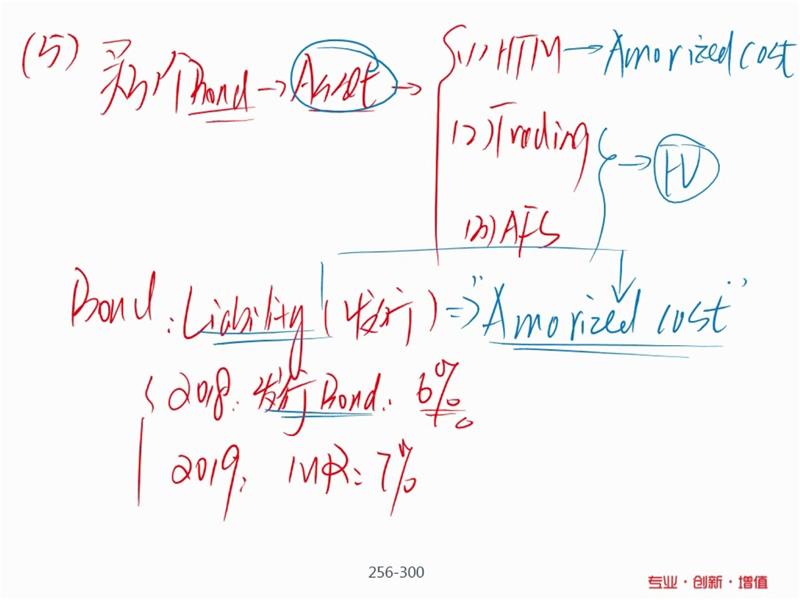 (5) 买3个Bond → Asset → (1) HTM → Amorized cost
(2) Trading
→ FV
(3) AFS
Bond: Liability (发行) => "Amorized cost"
2018. 发行Bond. 6%
2019. MR: 7%
256-300
专业·创新·增值